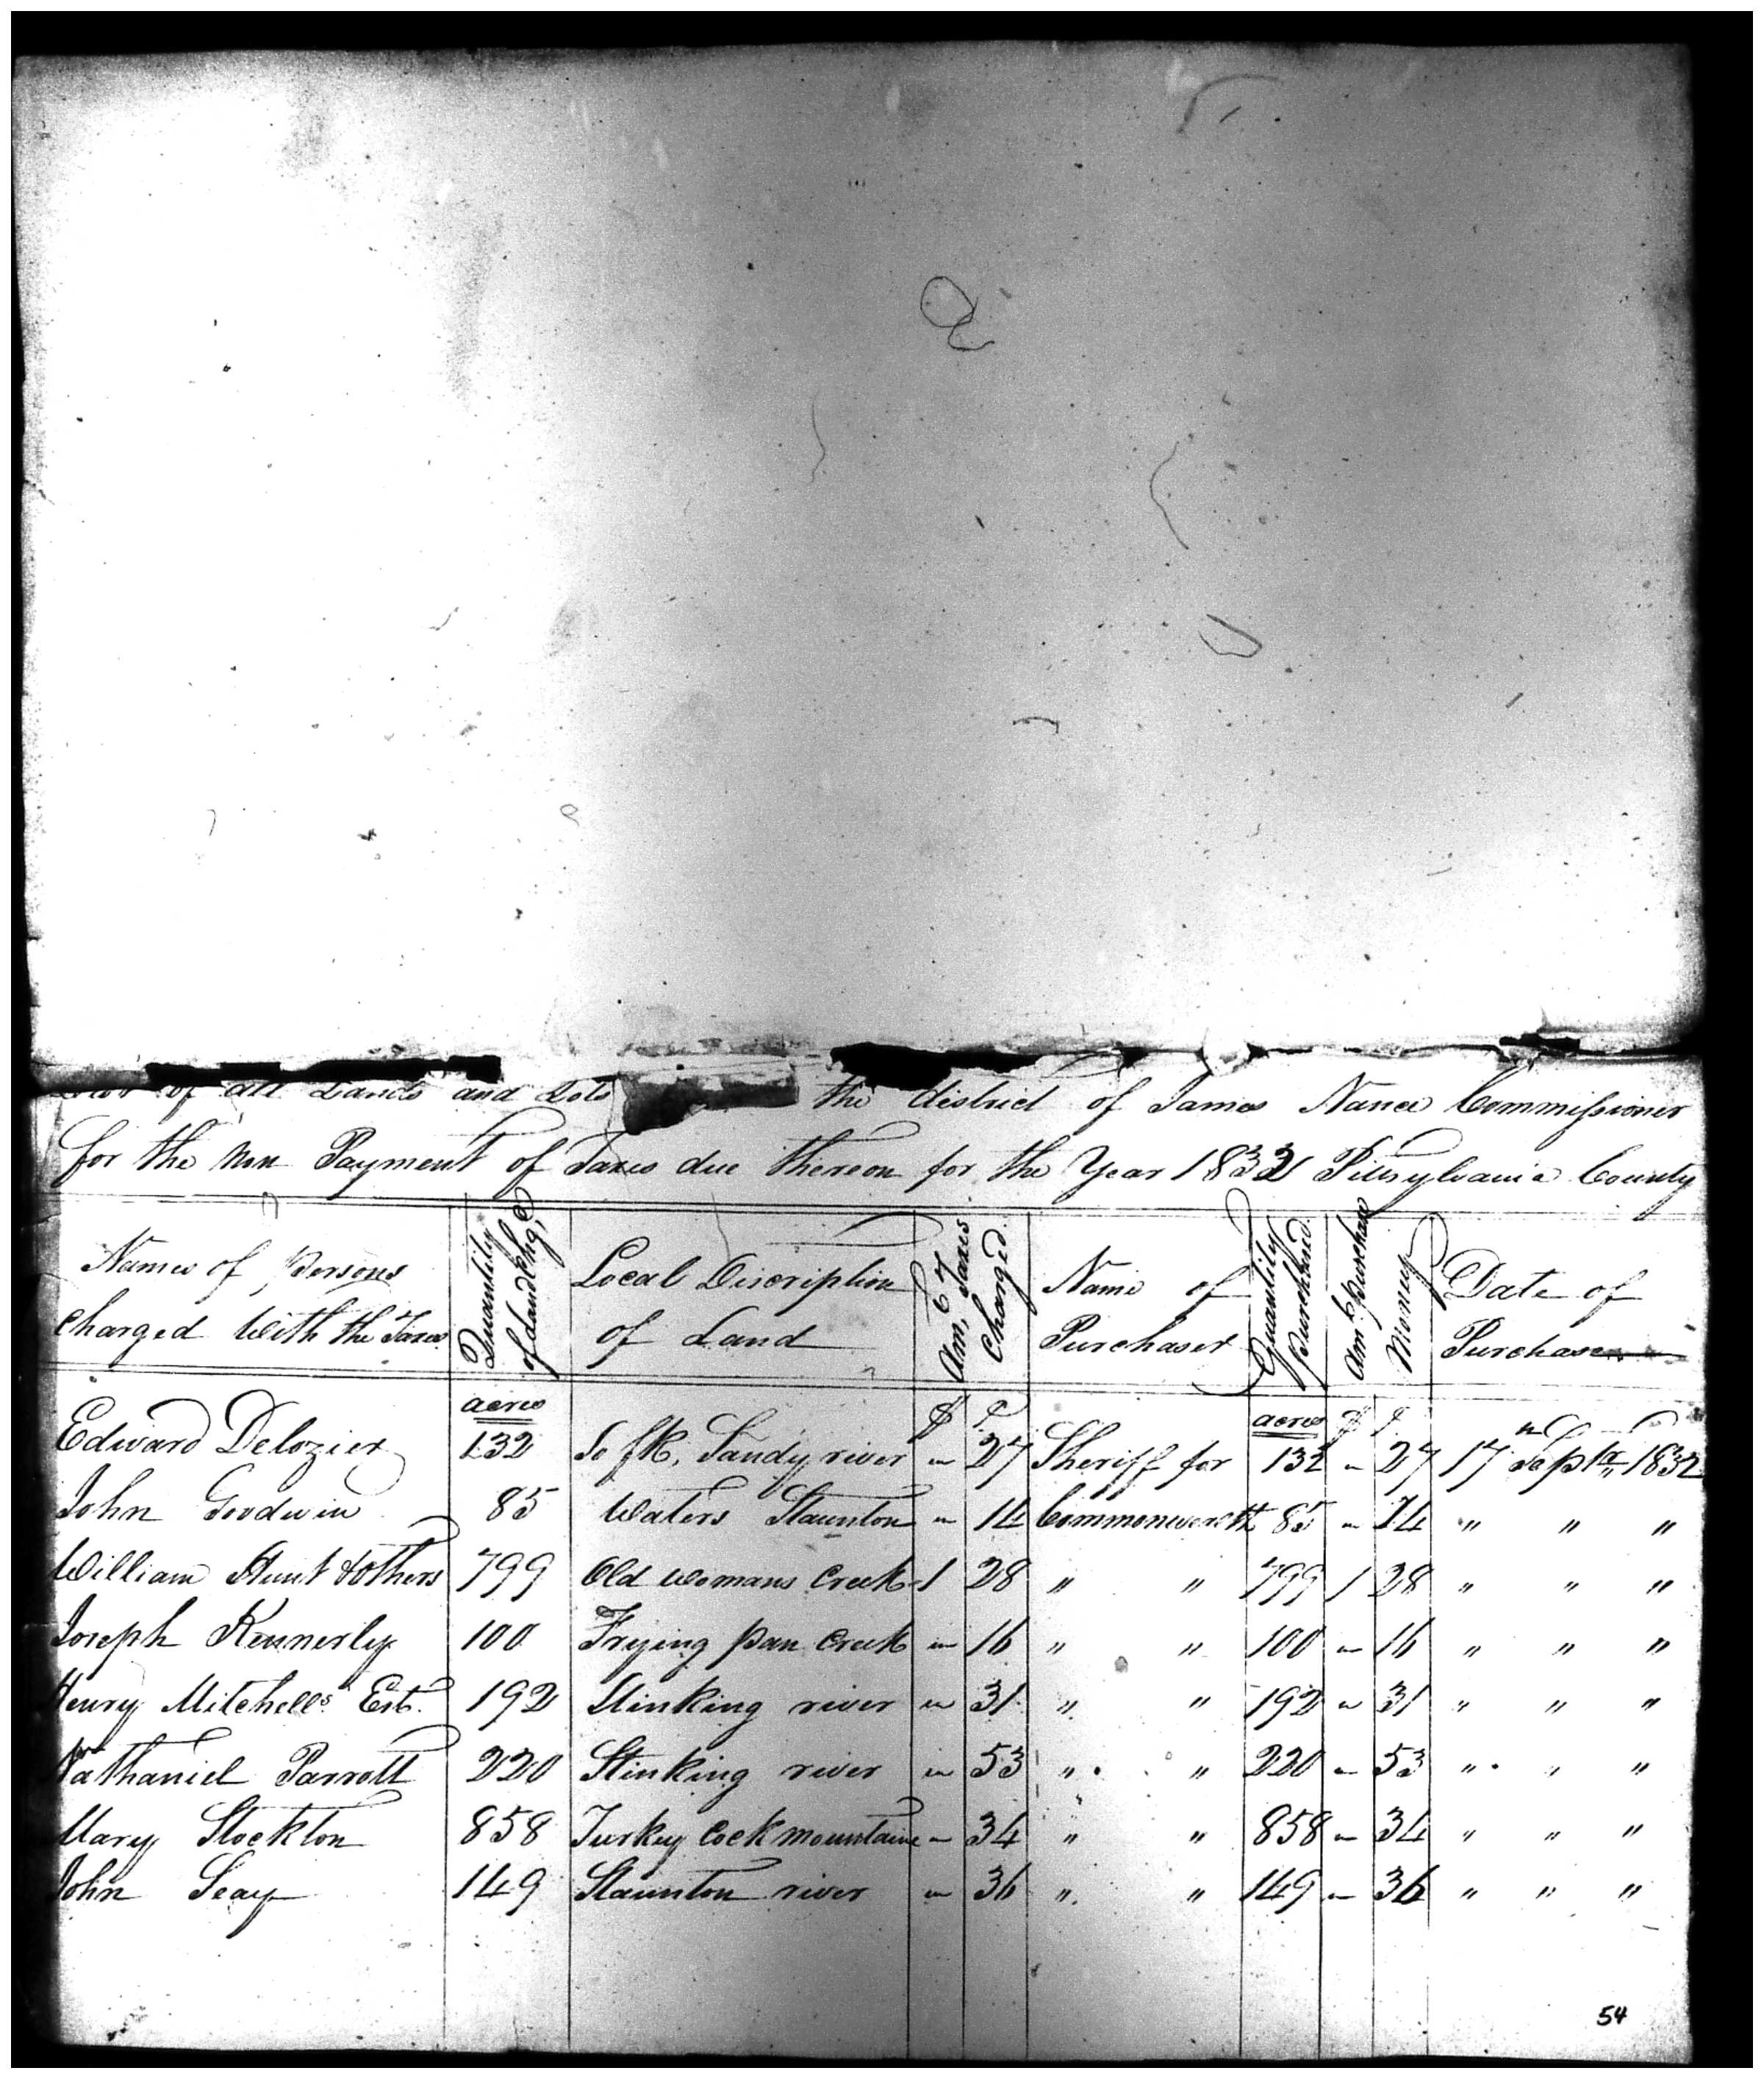 of all Lands and Lots the district of James Nance Commissioner
for the non Payment of Taxes due thereon for the Year 1832 Pittsylvania County
Names of Persons charged With the Taxes | Quantity of Land Chgd | Local Discription of Land | Amt of Taxes Charged. | Name of Purchaser | Quantity Purchased | Amt Purchase Money | Date of Purchase
acres $ ₵ acres $ ₵
Edward Delozier 132 So fk, Sandy river " 27 Sheriff for 132 " 27 17 Septr 1832
John Goodwin 85 Waters Staunton " 14 Commonwealth 85 " 14 " " "
William Hunt & Others 799 Old Womans Creek 1 28 " " 799 1 28 " " "
Joseph Kennerly 100 Frying pan Creek " 16 " " 100 " 16 " " "
Henry Mitchells Est. 192 Stinking river " 31 " " 192 " 31 " " "
Nathaniel Parrott 220 Stinking river " 53 " " 220 " 53 " " "
Mary Stockton 858 Turkey Cock mountain " 34 " " 858 " 34 " " "
John Seay 149 Staunton river " 36 " " 149 " 36 " " "
54